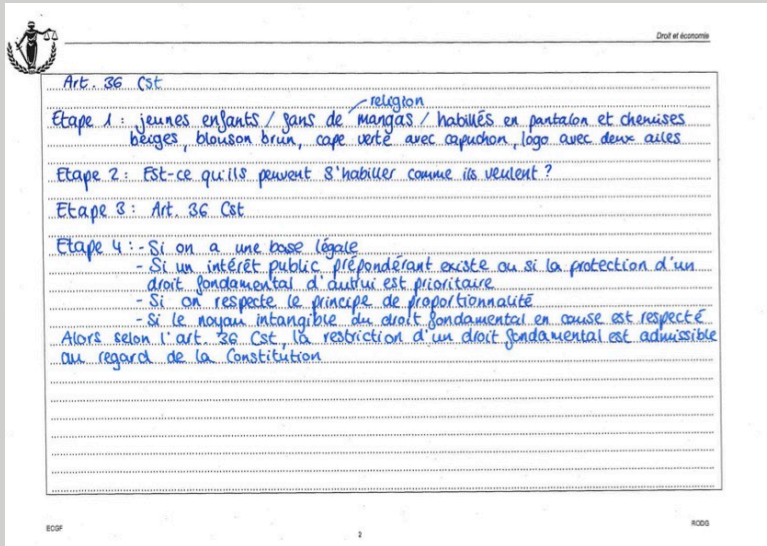 Droit et économie
Art. 36 Cst
religion
Etape 1 : jeunes enfants / fans de mangas / habillés en pantalon et chemises
beiges, blouson brun, cape verte avec capuchon, logo avec deux ailes
Etape 2 : Est-ce qu'ils peuvent s'habiller comme ils veulent ?
Etape 3 : Art. 36 Cst
Etape 4 : - Si on a une base légale
- Si un intérêt public prépondérant existe ou si la protection d'un
droit fondamental d'autrui est prioritaire
- Si on respecte le principe de proportionnalité
- Si le noyau intangible du droit fondamental en cause est respecté
Alors selon l'art. 36 Cst, la restriction d'un droit fondamental est admissible
au regard de la Constitution
ECGF
2
RODG